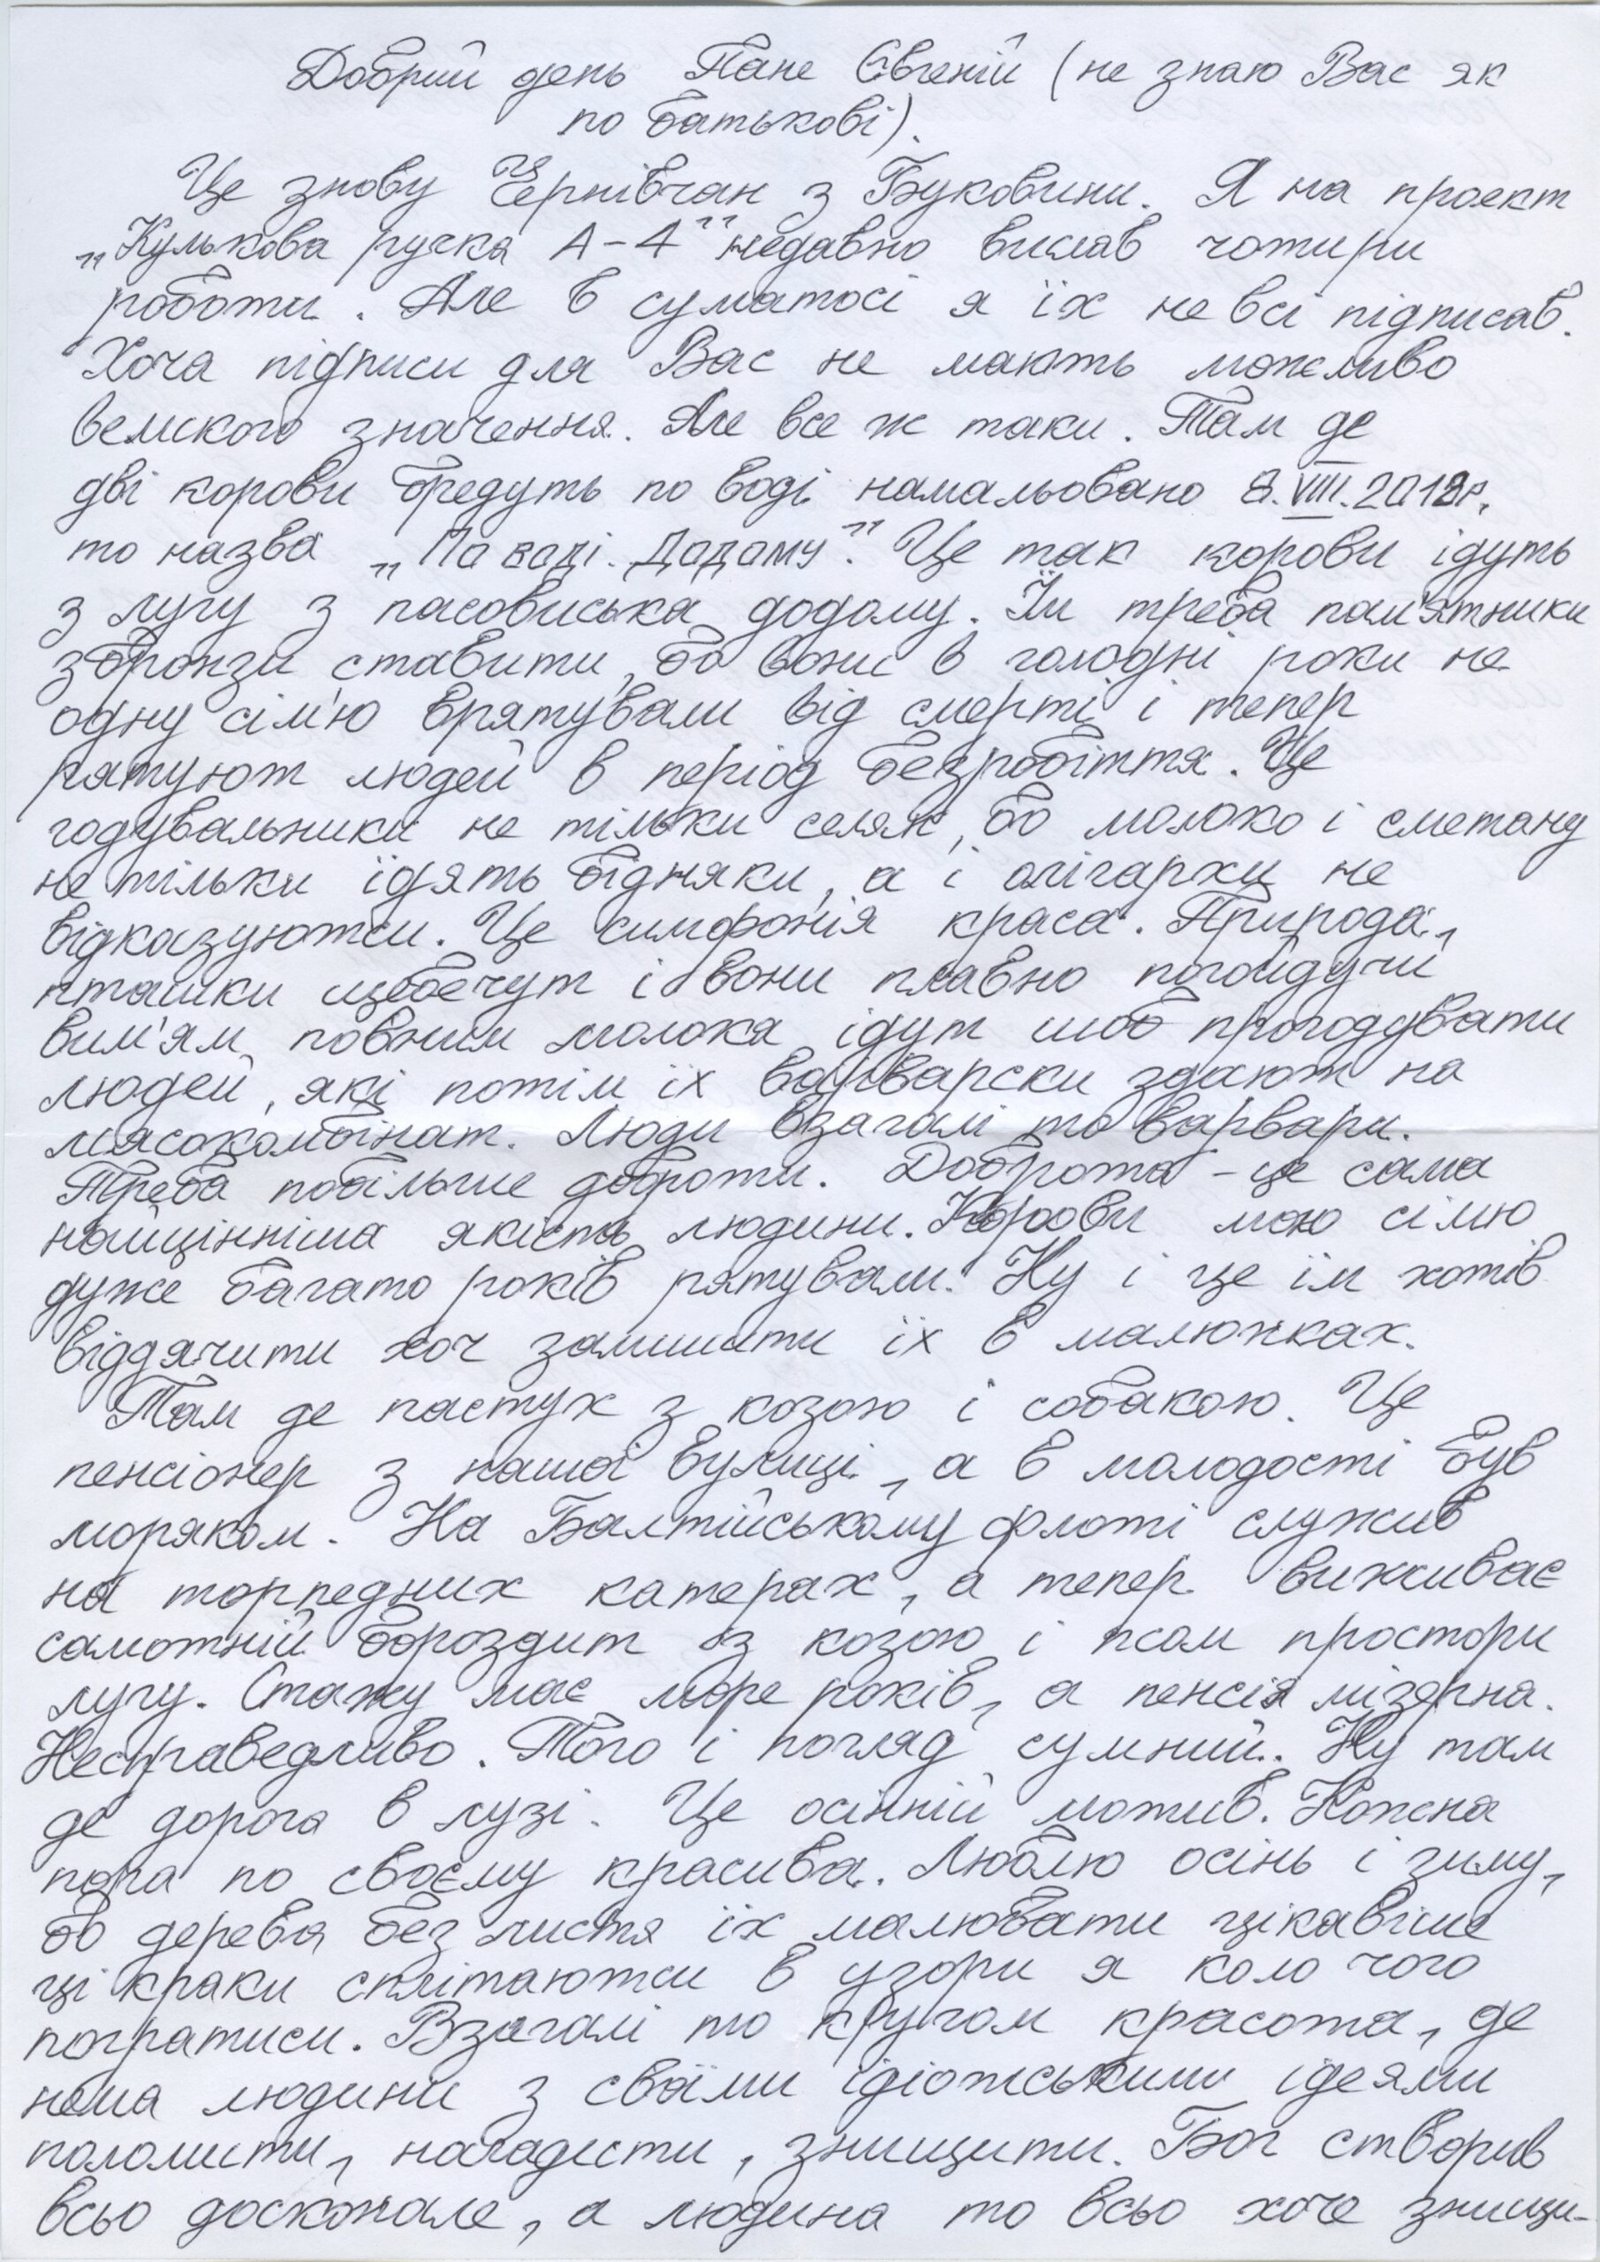 Добрий день Пане Євгеній (не знаю Вас як
по батькові).
Це знову Чернівчан з Буковини. Я на проект
„Кулькова ручка А-4" недавно вислав чотири
роботи. Але в суматосі я їх не всі підписав.
Хоча підписи для Вас не мають можливо
великого значення. Але все ж таки. Там де
дві корови бредуть по воді намальовано 8.VIII.2018р.
то назва „По воді. Додому". Це так корови ідуть
з лугу з пасовиська додому. Їм треба пам'ятники
з бронзи ставити, бо вони в голодні роки не
одну сім'ю врятували від смерті і тепер
рятуют людей в період безробіття. Це
годувальники не тільки селян, бо молоко і сметану
не тільки їдять бідняки, а і олігархи не
відказуютси. Це симфонія краса. Природа,
пташки щебечут і вони плавно погойдучи
вим'ям повним молока ідут шоб прогодувати
людей, які потім їх варварски здают на
м'ясокомбінат. Люди взагалі то варвари.
Треба побільше доброти. Доброта - це сама
найцінніша якість людини. Корови мою сімю
дуже багато років рятували. Ну і це їм хотів
віддячити хоч залишити їх в малюнках.
Там де пастух з козою і собакою. Це
пенсіонер з нашої вулиці, а в молодості був
моряком. На Балтійському флоті служив
на торпедних катерах, а тепер виживає
самотній бороздит з козою і псом простори
лугу. Стажу має море років, а пенсія мізерна.
Несправедливо. Того і погляд сумний. Ну там
де дорога в лузі. Це осінній мотив. Кожна
пора по своєму красива. Люблю осінь і зиму,
бо дерева без листя їх малювати цікавіше
ці краки сплітаютси в узори я коло чого
погратиси. Взагалі то кругом красота, де
нема людини з своїми ідіотськими ідеями
поломити, нагадити, знищити. Бог створив
всьо досконале, а людина то всьо хоче знищи-